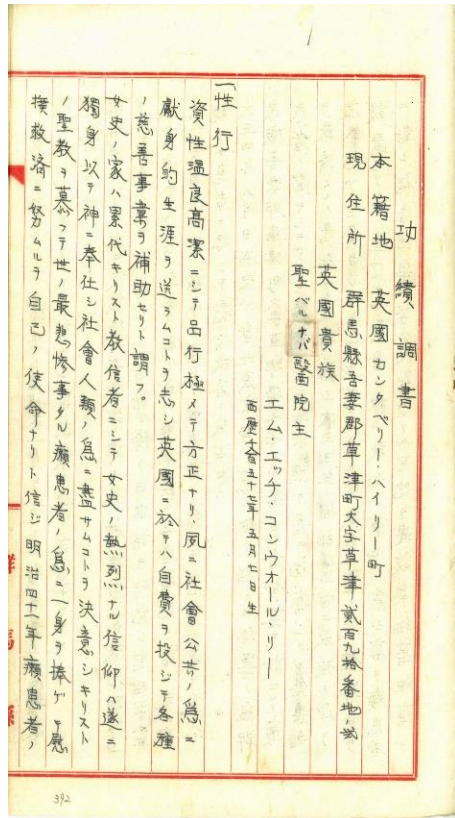 功績調書
本籍地 英國カンタベリー・ハイリー町
現住所 群馬縣吾妻郡草津町大字草津貳百九拾番地ノ弐
英國貴族
聖バルナバ醫院主
エム・エッチ・コンウオール・リー
西暦千八百五十七年五月七日生
一性行
資性溫良高潔ニシテ品行極メテ方正ナリ、夙ニ社會公共ノ爲ニ
獻身的生涯ヲ送ラムコトヲ志シ英國ニ於テハ自費ヲ投ジテ各種
ノ慈善事業ヲ補助セリト謂フ。
女史ノ家ハ累代キリスト教信者ニシテ女史ノ熱烈ナル信仰ハ遂ニ
獨身以テ神ニ奉仕シ社會人類ノ爲ニ盡サムコトヲ決意シキリスト
ノ聖教ヲ慕フテ世ノ最悲慘事タル癩患者ノ爲ニ一身ヲ捧ゲテ慰
撫救濟ニ努ムルヲ自己ノ使命ナリト信ジ明治四十一年癩患者ノ
群馬縣
392